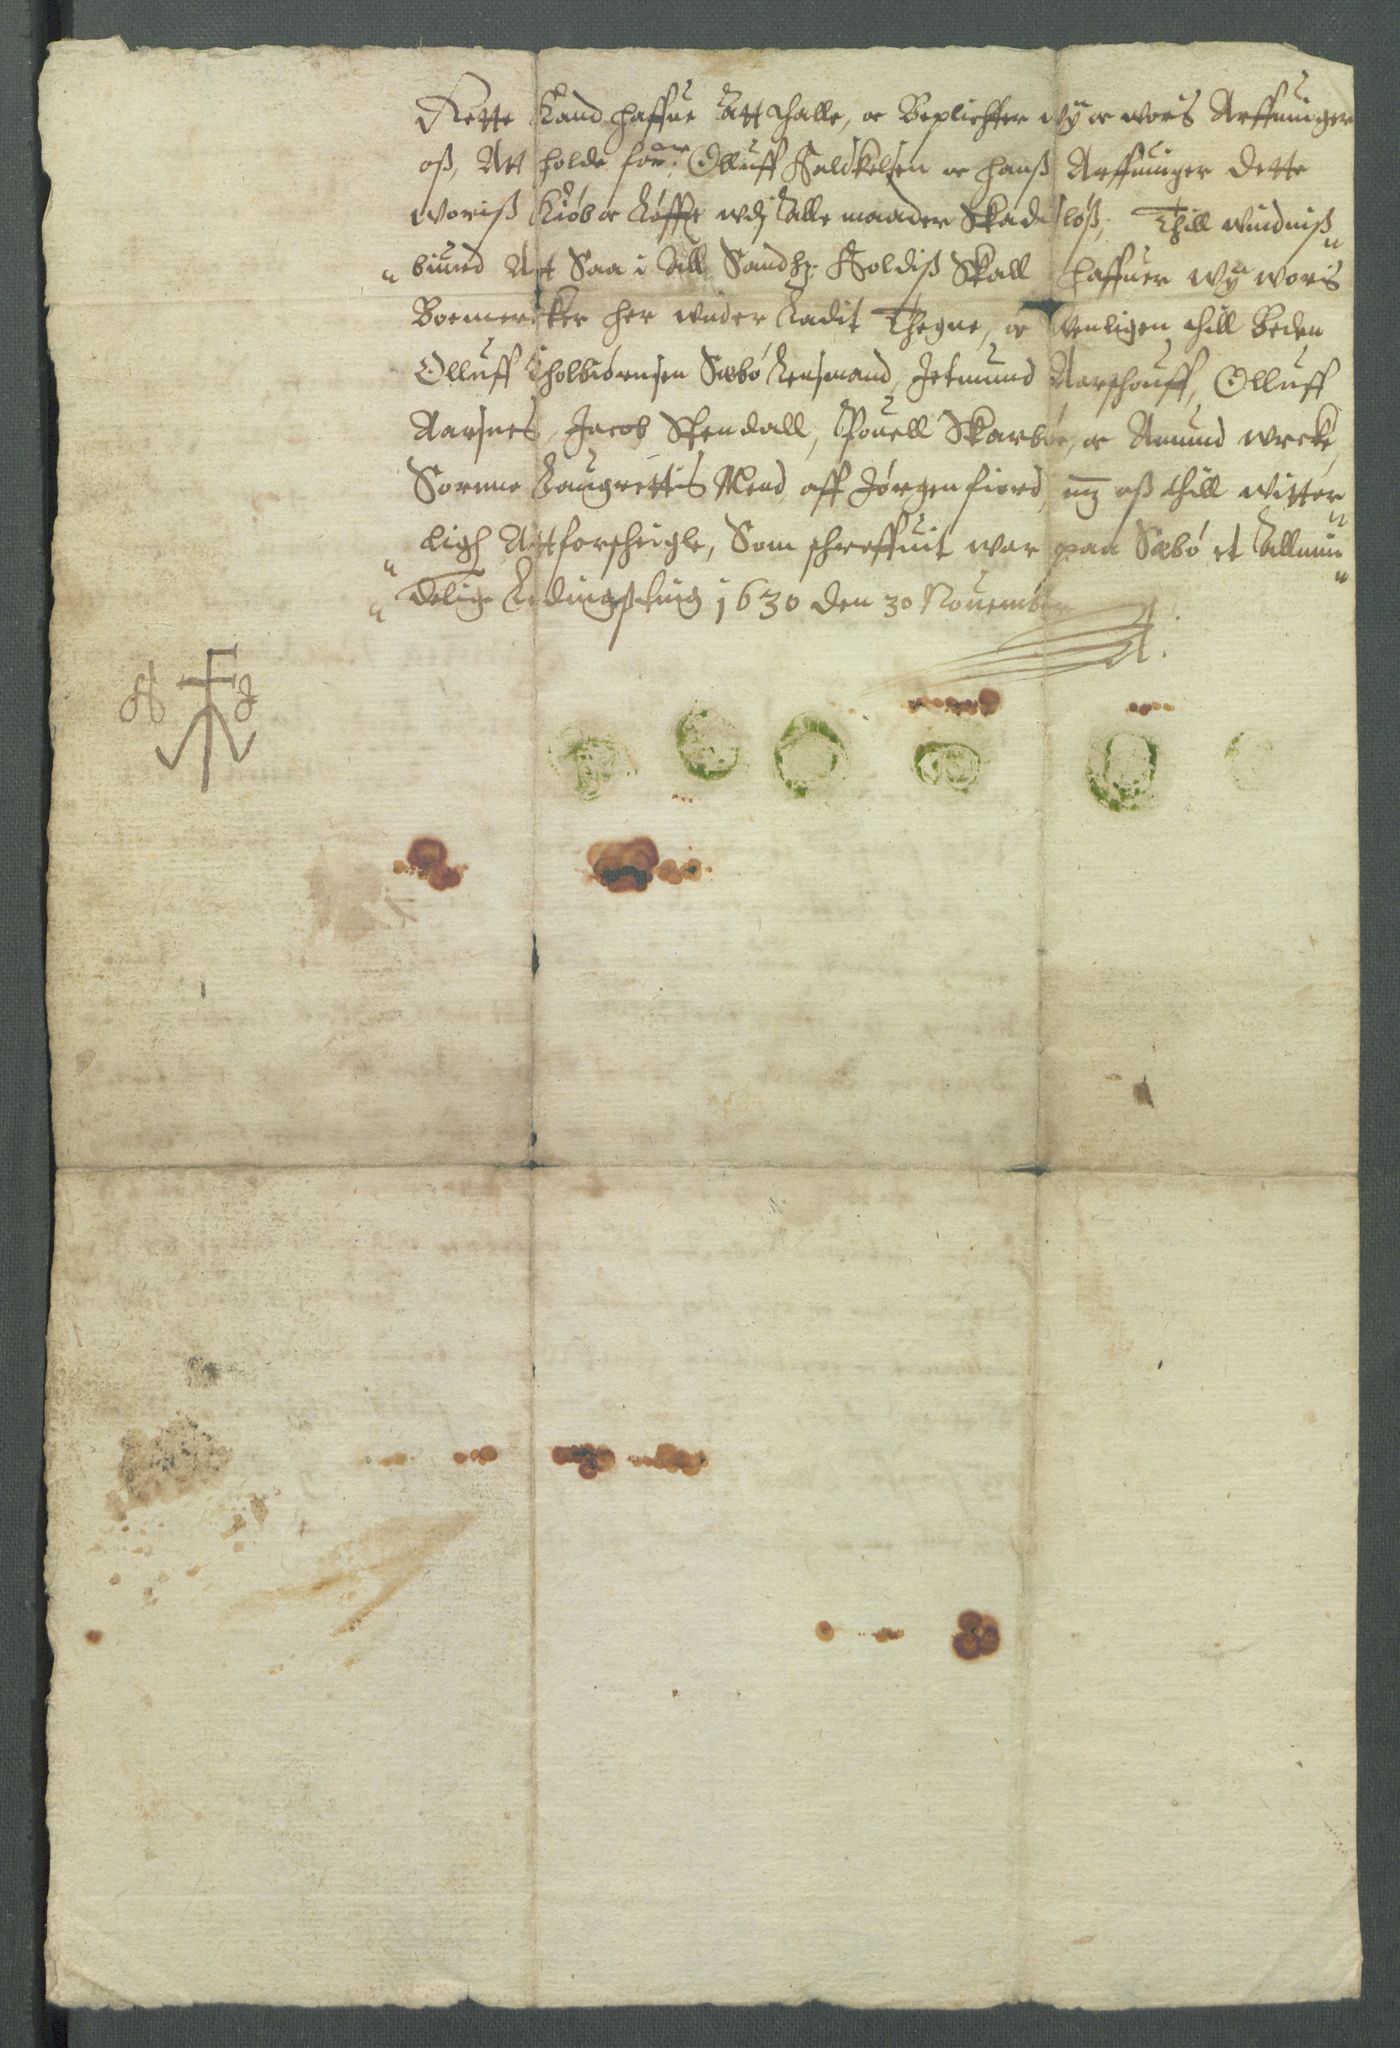 Rette kand haffue att thalle, oc Beplichter wy oc wore Arffuinger
oß, Att holde for.ne Olluff Eskelsen oc hanß Arffuinger dette
woriß kiøb oc kiøffte wdj alle maader Skadisløß, Thill windniß„
„biurd Att Saa i All Sandhz holdiß Skall haffuer wy woris
Boemercker her wnder ladit Thegne, oc wenligen thill Beden
Olluff Tholbiørnsen Sæbø Lensmand, Jetmund Aarshouff, Olluff
Aarsnes, Jacob Stendall, Pouell Skarbøe, oc Amund wrcke,
Sorenne Laugrettis Mend aff Jørgenfiord, mz oß thill witter„
„ligh Att forseigle, Som schreffuit war paa Sæbø et Allmin„
„delig Ledingsting 1630 den 30 Nouember
A J